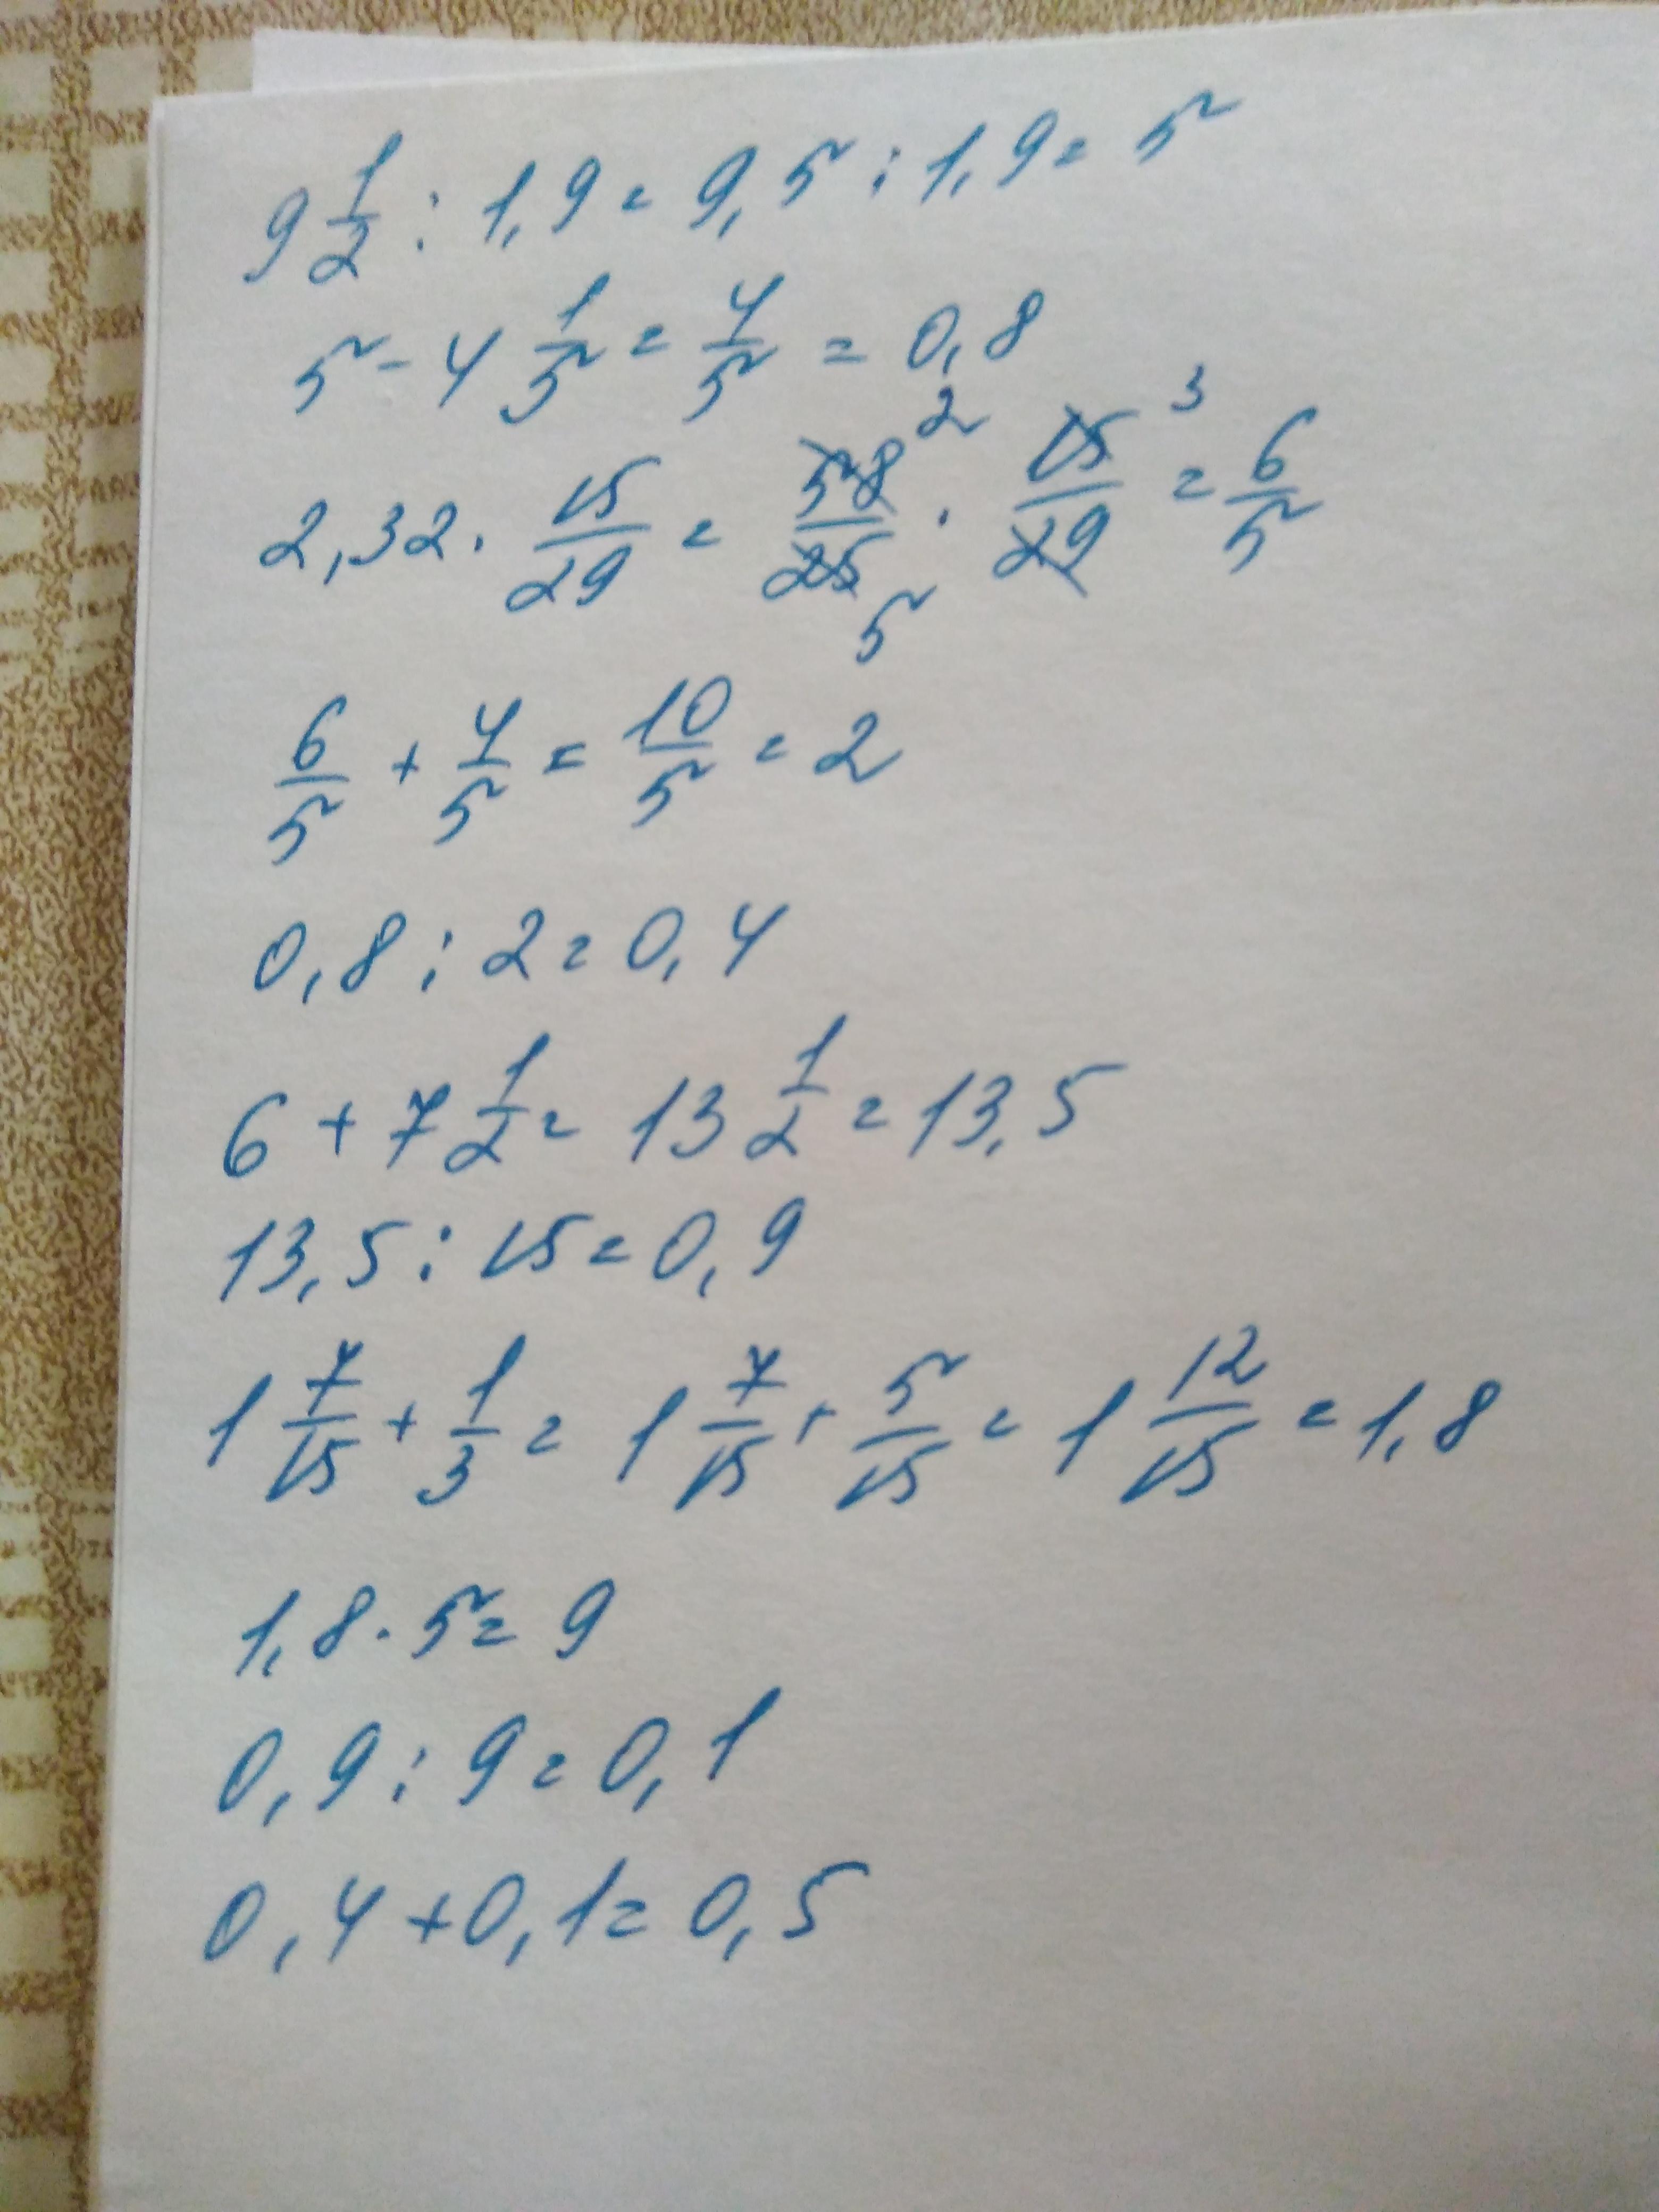 9 1/2 : 1,9 = 9,5 : 1,9 = 5
5 - 4 1/5 = 4/5 = 0,8
2,32 · 15/29 = 58/25 · 15/29 = 6/5
2 3
5
6/5 + 4/5 = 10/5 = 2
0,8 : 2 = 0,4
6 + 7 1/2 = 13 1/2 = 13,5
13,5 : 15 = 0,9
1 7/15 + 1/3 = 1 7/15 + 5/15 = 1 12/15 = 1,8
1,8 · 5 = 9
0,9 : 9 = 0,1
0,4 + 0,1 = 0,5